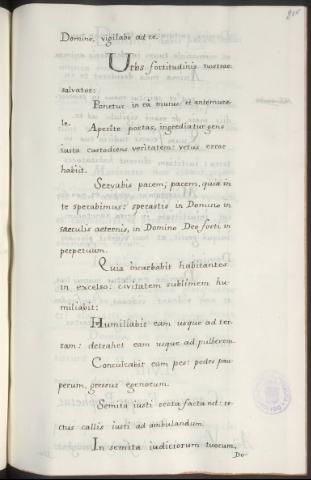 Domine, vigilabo ad te.
Urbs fortitudinis nostrae
salvator:
Ponetur in ea murus et antemura-
le.
Aperite portas, ingrediatur gens
iusta custodiens veritatem: vetus error
habiit.
Servabis pacem; pacem, quia in
te sperabimus: sperastis in Domino in
saeculis aeternis, in Domino Deo forti in
perpetuum.
Quia incurbabit habitantes
in excelso: civitatem sublimem hu-
miliabit:
Humiliabit eam usque ad ter-
ram: detrahet eam usque ad pulverem.
Conculcabit eam pes: pedes pau-
perum, gressus egenorum.
Semita iusti recta facta est: re-
ctus callis iusti ad ambulandum.
In semita iudiciorum tuorum,
Do-